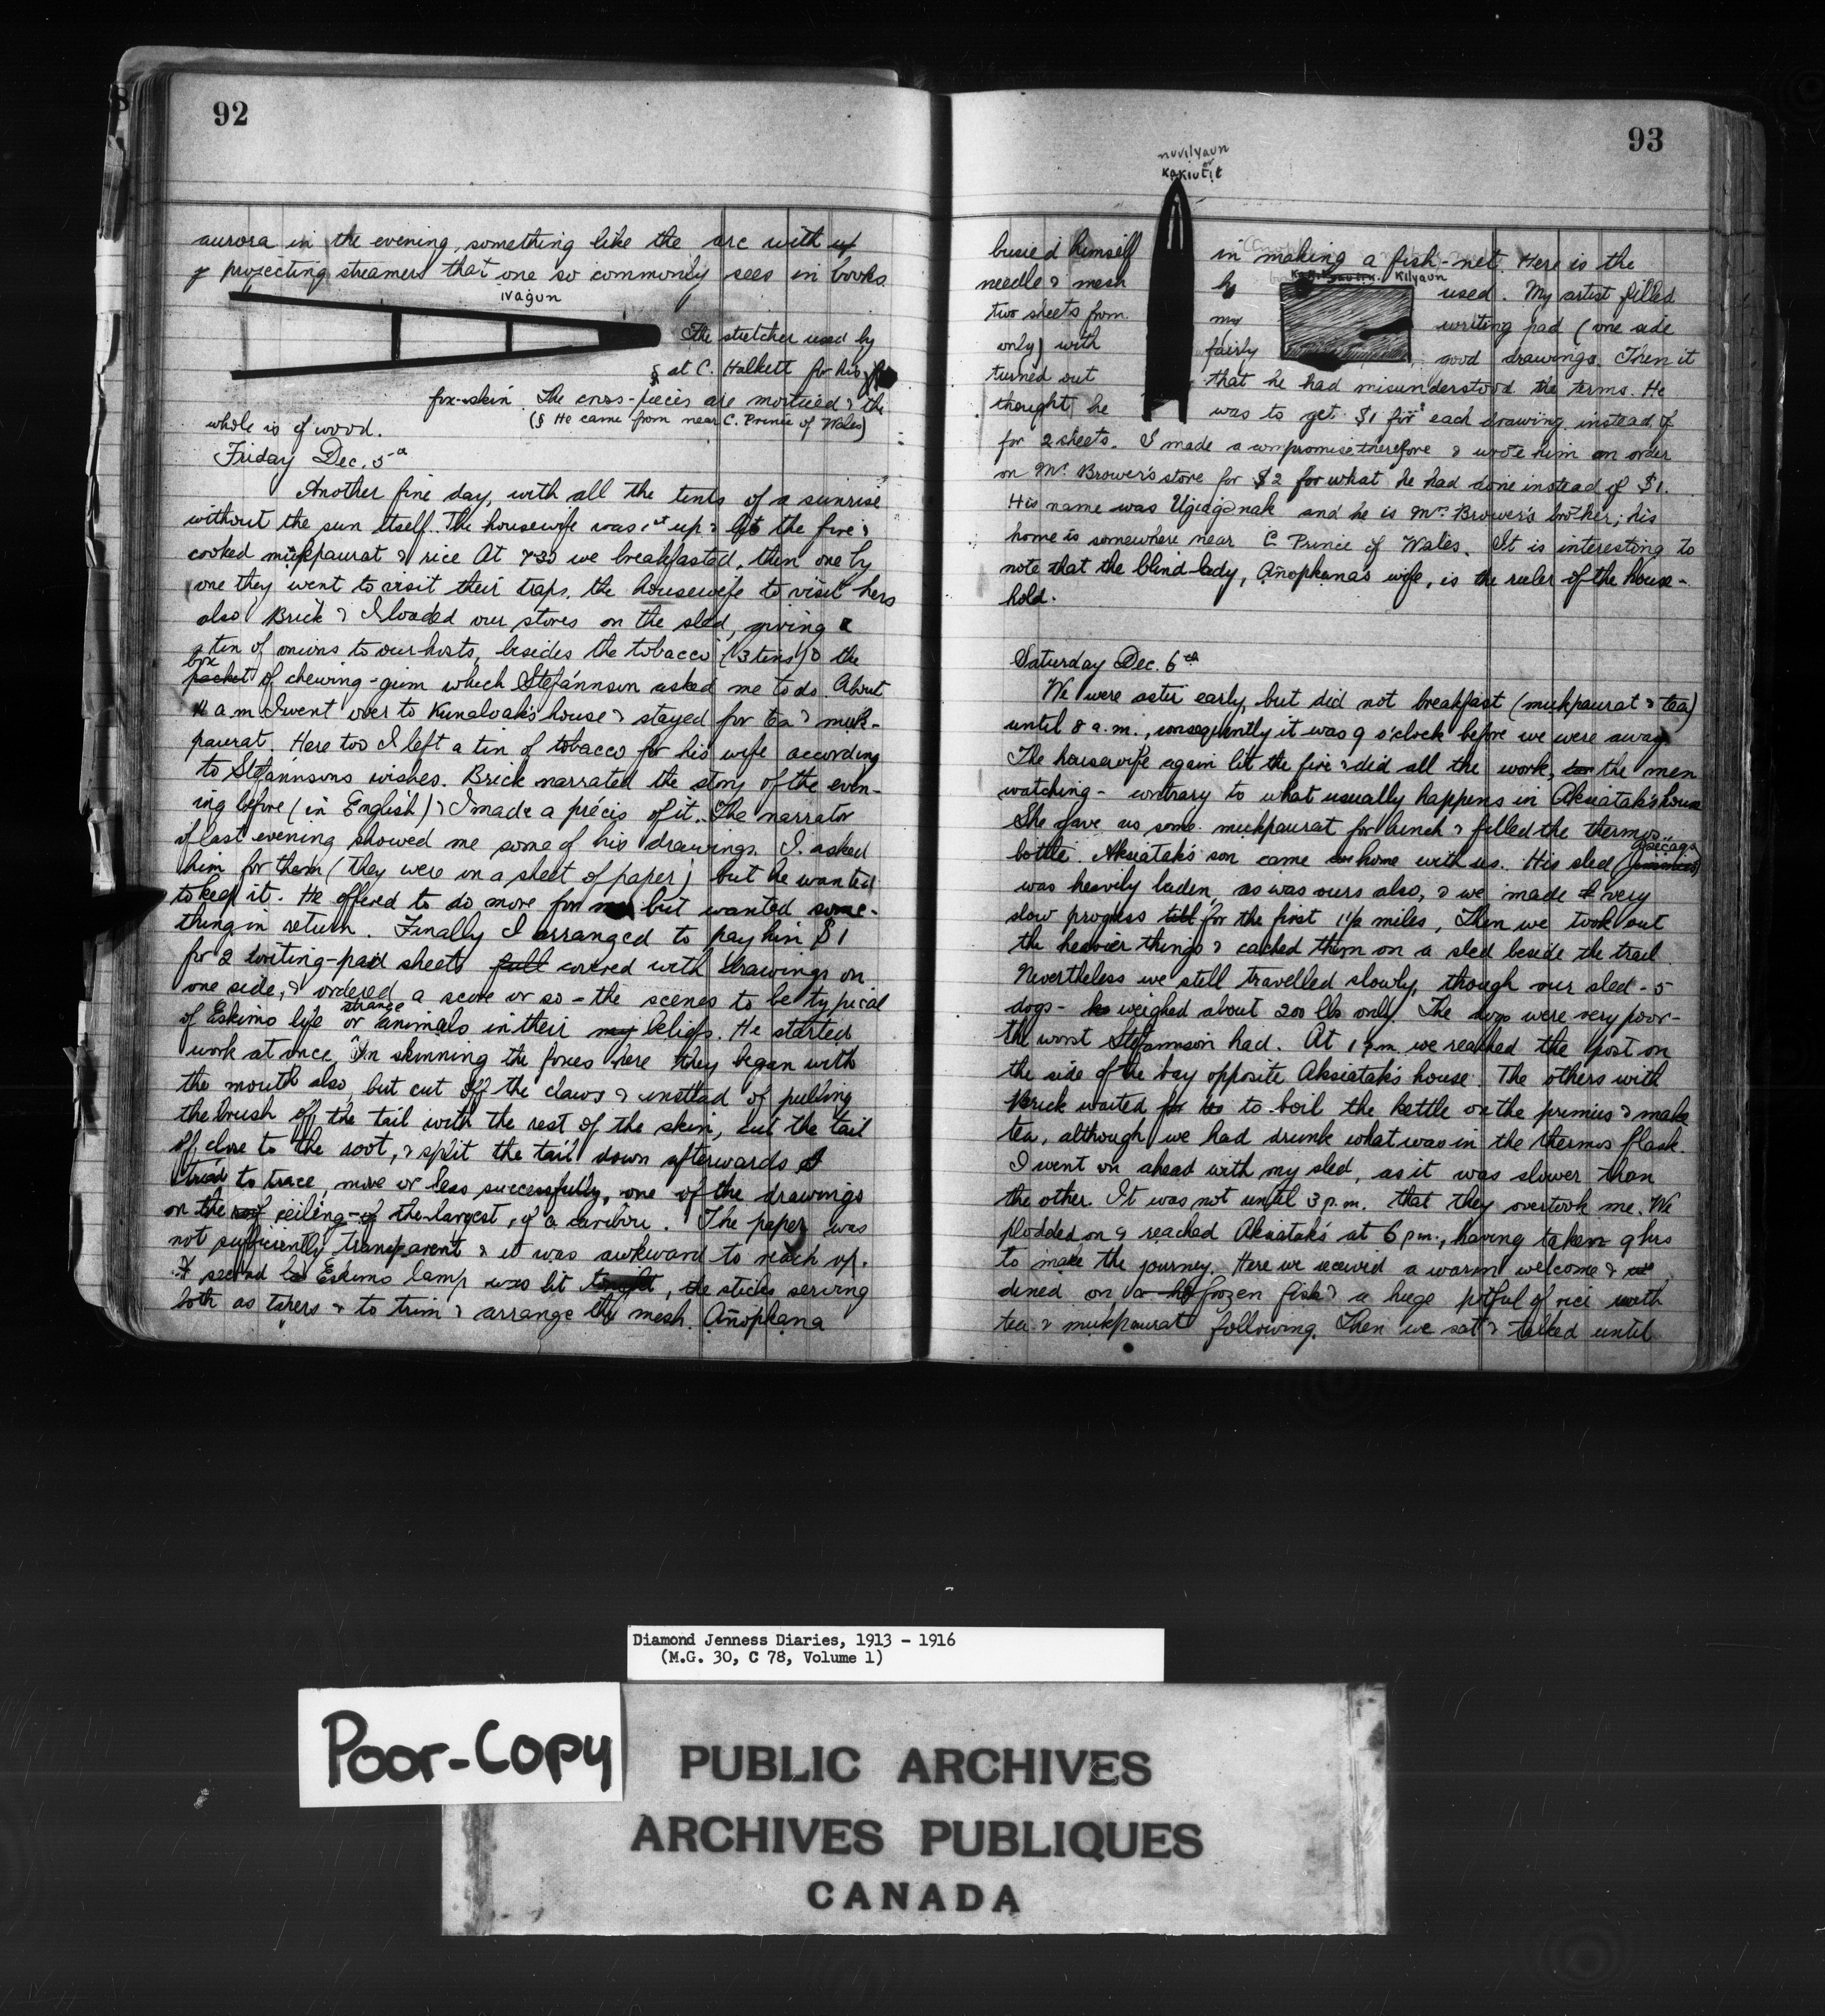 92
aurora in the evening, something like the arc with
projecting streamers that one so commonly sees in books.
ivaġun
The stretcher used by
§ at C. Halkett for his
fox-skin. The cross-pieces are morticed & the
(§ He came from near C. Prince of Wales)
whole is of wood.
Friday Dec. 5th
Another fine day, with all the tints of a sunrise
without the sun itself. The housewife was 1st up & lit the fire &
cooked mukpaurat & rice At 7.30 we breakfasted, then one by
one they went to visit their traps, the housewife to visit hers
also Brick & I loaded our stores on the sled, giving a
tin of onions to our hosts, besides the tobacco (3 tins) & the
box
packet of chewing-gum which Stefánnson asked me to do. About
11 a m I went over to Kunaloak's house & stayed for tea & muk-
paurat. Here too I left a tin of tobacco for his wife according
to Stefánnsons wishes. Brick narrated the story of the even-
ing before (in English) & I made a précis of it. The narrator
of last evening showed me some of his drawings. I asked
him for them (they were on a sheet of paper) but he wanted
to keep it. He offered to do more for me but wanted some-
thing in return. Finally I arranged to pay him $1
for 2 writing-pad sheets full covered with drawings on
one side, & ordered a score or so - the scenes to be typical
strange
of Eskimo life or animals in their my beliefs. He started
work at once, In skinning the foxes here they began with
the mouth also, but cut off the claws & instead of pulling
the brush off the tail with the rest of the skin, cut the tail
off close to the root, & split the tail down afterwards I
tried to trace, more or less successfully, one of the drawings
on the roof ceiling - of the largest, of a caribou. The paper was
not sufficiently transparent & it was awkward to reach up.
A second Eskimo lamp was lit tonight, the sticks serving
both as tapers & to trim & arrange the mesh. Añopkana
93
nuvilyaun
or
kakiutit
busied himself in making a fish-net. Here is the
kilyaun
needle & mesh he used. My artist filled
two sheets from my writing pad (one side
only) with fairly good drawings. Then it
turned out that he had misunderstood the terms. He
thought he was to get $1 for each drawing instead of
for 2 sheets. I made a compromise therefore & wrote him an order
on Mr. Brower's store for $2 for what he had done instead of $1.
His name was Ugiaganak and he is Mrs. Brower's brother; his
home is somewhere near C. Prince of Wales. It is interesting to
note that the blind lady, Añopkana's wife, is the ruler of the house-
hold.
Saturday Dec. 6th
We were astir early, but did not breakfast (mukpaurat & tea)
until 8 a.m., consequently it was 9 o'clock before we were away.
The housewife again lit the fire & did all the work, the men
watching - contrary to what usually happens in Aksiatak's house
She gave us some mukpaurat for lunch & filled the thermos
bottle. Aksiatak's son came home with us. His sled
was heavily laden, as was ours also, & we made very
slow progress till for the first 1½ miles, Then we took out
the heavier things & cached them on a sled beside the trail.
Nevertheless we still travelled slowly, though our sled - 5
dogs - weighed about 200 lbs only. The dogs were very poor -
the worst Stefannson had. At 1 p.m. we reached the post on
the side of the bay opposite Aksiatak's house. The others with
Brick waited for to boil the kettle on the primus & make
tea, although we had drunk what was in the thermos flask.
I went on ahead with my sled, as it was slower than
the other. It was not until 3 p.m. that they overtook me. We
plodded on & reached Aksiatak's at 6 p.m., having taken 9 hrs
to make the journey. Here we received a warm welcome &
dined on frozen fish & a huge potful of rice with
tea & mukpaurat following. Then we sat & talked until
Diamond Jenness Diaries, 1913 - 1916
(M.G. 30, C 78, Volume 1)
Poor-Copy
PUBLIC ARCHIVES
ARCHIVES PUBLIQUES
CANADA